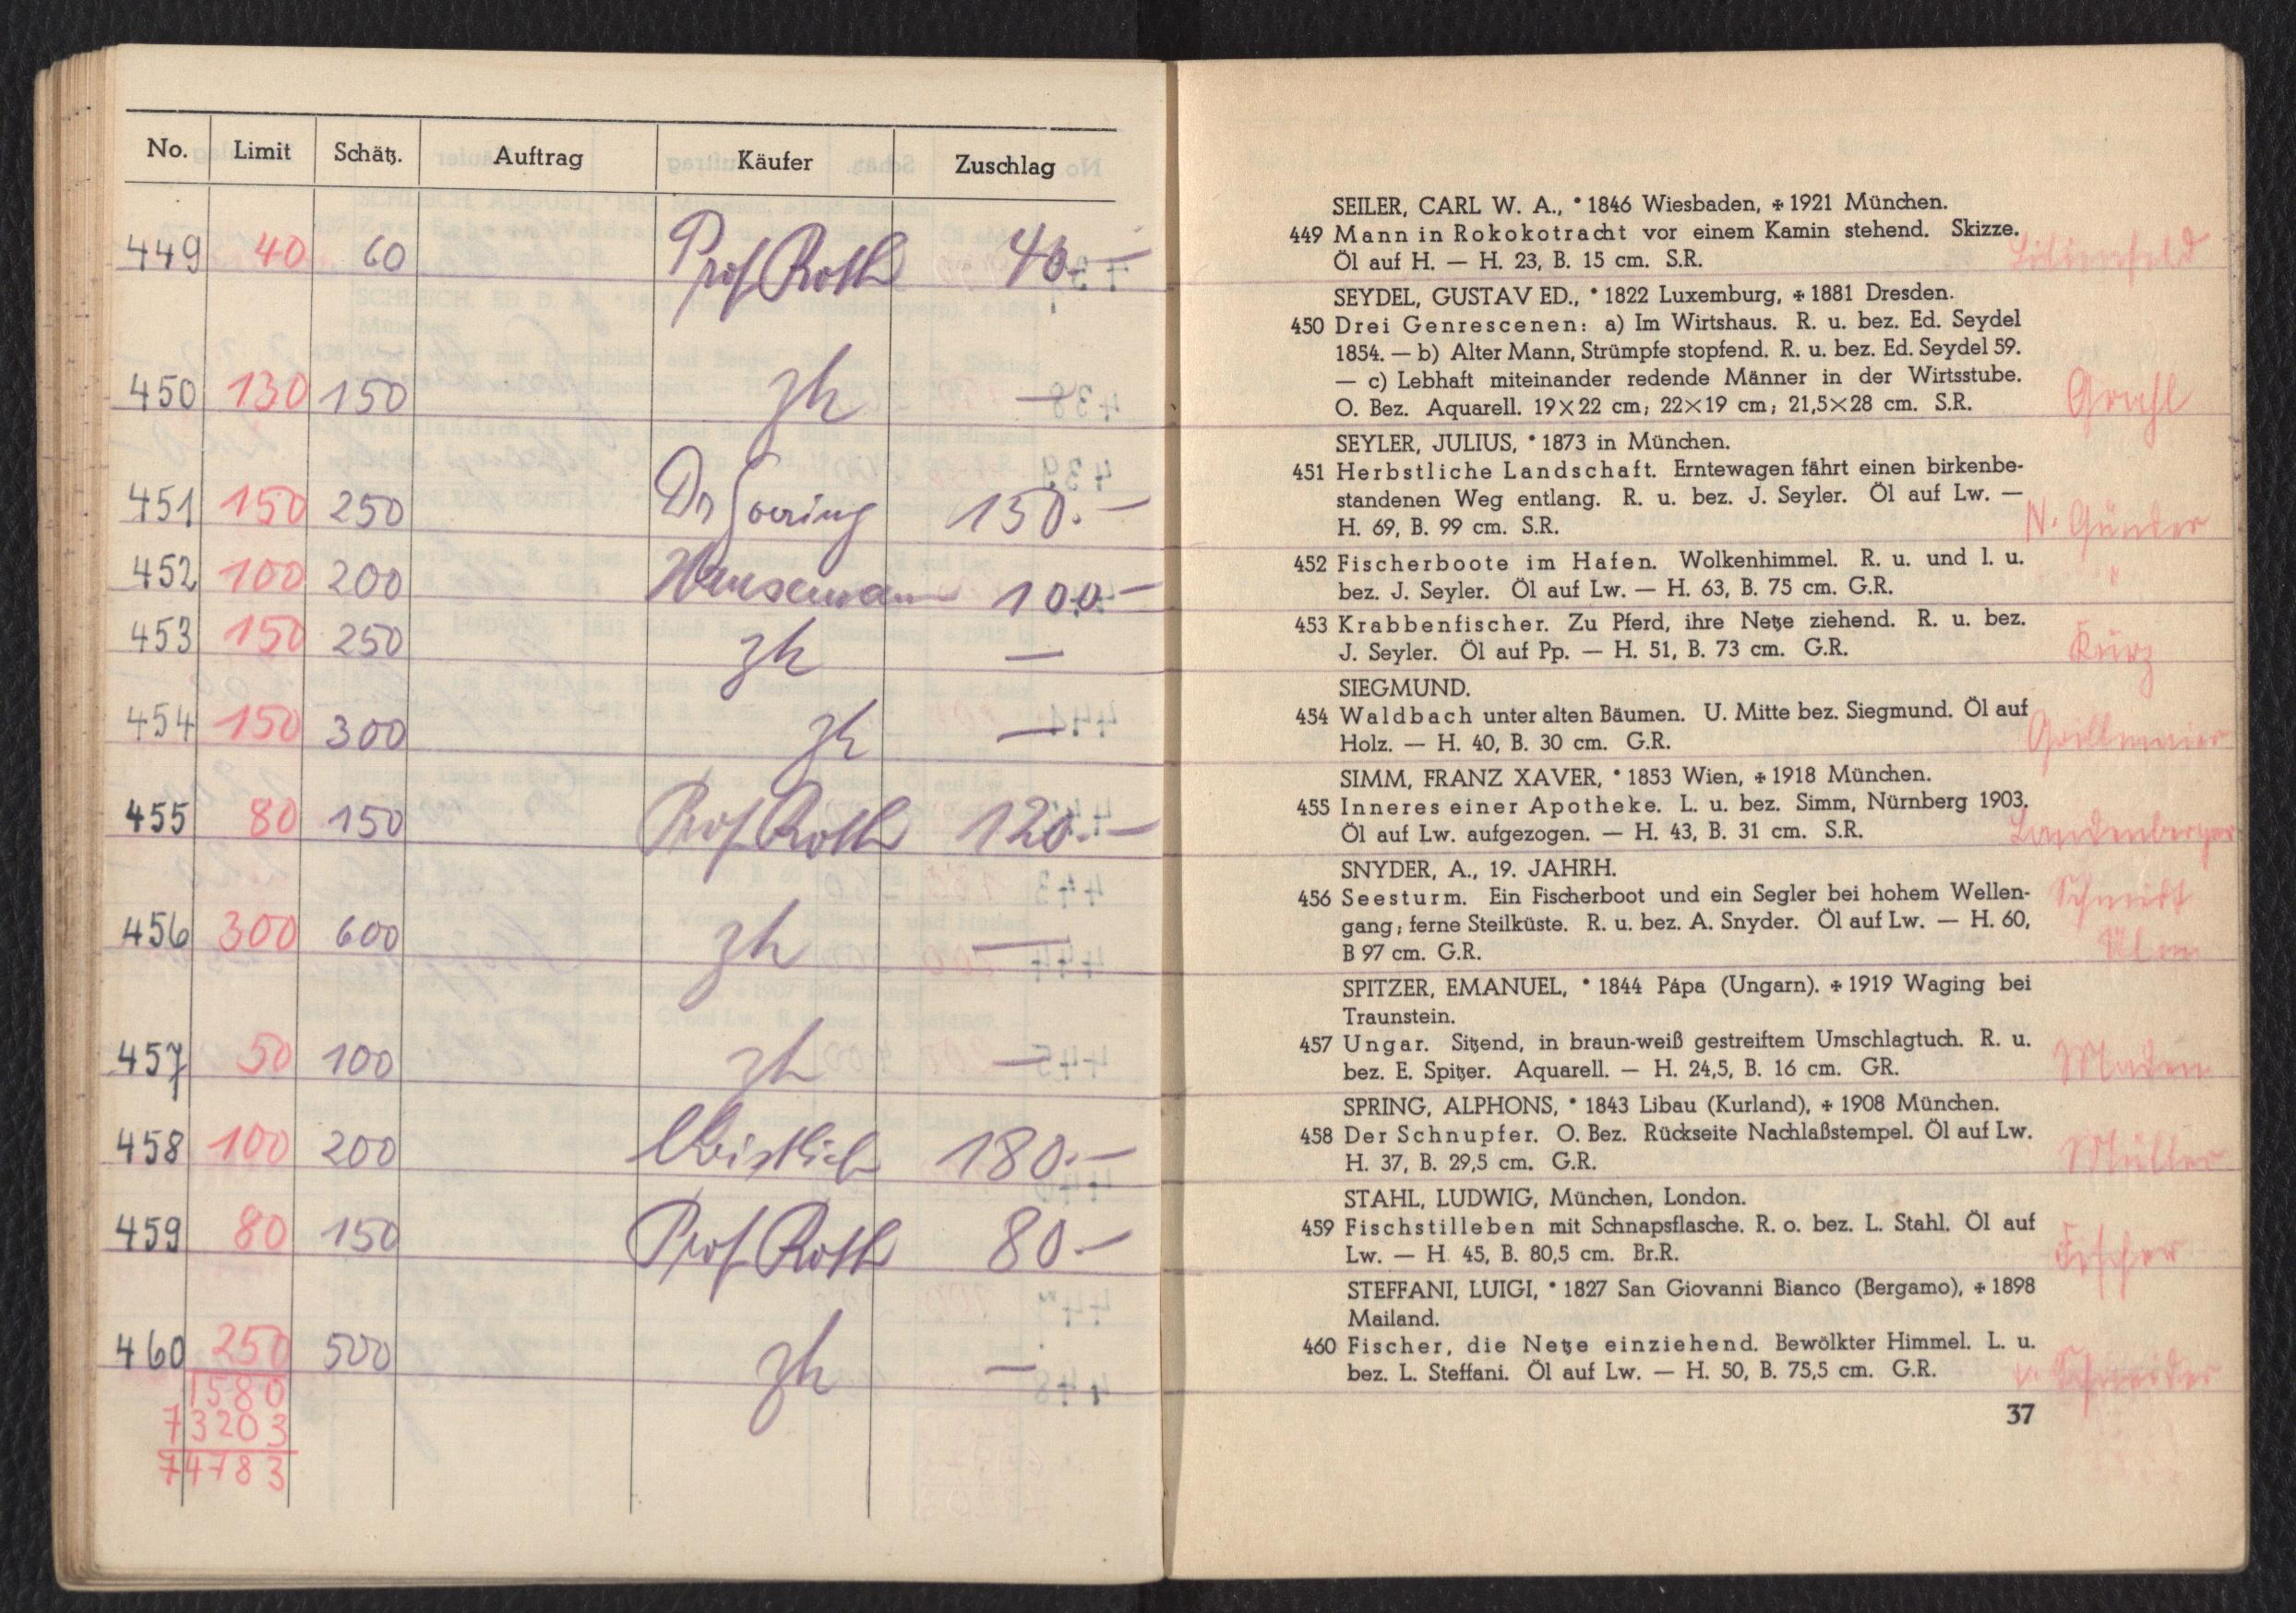 No. Limit Schätz. Auftrag Käufer Zuschlag
449 40 60 Prof Roth 40.—
450 130 150 zh —
451 150 250 Dr Goering 150.—
452 100 200 Hausemann 100.—
453 150 250 zh —
454 150 300 zh —
455 80 150 Prof Roth 120.—
456 300 600 zh —
457 50 100 zh —
458 100 200 180.—
459 80 150 Prof Roth 80.—
460 250 500 zh —
1580
73203
74783
SEILER, CARL W. A., * 1846 Wiesbaden, ✠ 1921 München.
449 Mann in Rokokotracht vor einem Kamin stehend. Skizze.
Öl auf H. — H. 23, B. 15 cm. S.R.
Lilienfeld
SEYDEL, GUSTAV ED., * 1822 Luxemburg, ✠ 1881 Dresden.
450 Drei Genrescenen: a) Im Wirtshaus. R. u. bez. Ed. Seydel
1854. — b) Alter Mann, Strümpfe stopfend. R. u. bez. Ed. Seydel 59.
— c) Lebhaft miteinander redende Männer in der Wirtsstube.
O. Bez. Aquarell. 19×22 cm; 22×19 cm; 21,5×28 cm. S.R.
SEYLER, JULIUS, * 1873 in München.
451 Herbstliche Landschaft. Erntewagen fährt einen birkenbe-
standenen Weg entlang. R. u. bez. J. Seyler. Öl auf Lw. —
H. 69, B. 99 cm. S.R.
N. Günder
452 Fischerboote im Hafen. Wolkenhimmel. R. u. und l. u.
bez. J. Seyler. Öl auf Lw. — H. 63, B. 75 cm. G.R.
"
453 Krabbenfischer. Zu Pferd, ihre Netze ziehend. R. u. bez.
J. Seyler. Öl auf Pp. — H. 51, B. 73 cm. G.R.
Kurz
SIEGMUND.
454 Waldbach unter alten Bäumen. U. Mitte bez. Siegmund. Öl auf
Holz. — H. 40, B. 30 cm. G.R.
Grillmaier
SIMM, FRANZ XAVER, * 1853 Wien, ✠ 1918 München.
455 Inneres einer Apotheke. L. u. bez. Simm, Nürnberg 1903.
Öl auf Lw. aufgezogen. — H. 43, B. 31 cm. S.R.
Landenberger
SNYDER, A., 19. JAHRH.
456 Seesturm. Ein Fischerboot und ein Segler bei hohem Wellen-
gang; ferne Steilküste. R. u. bez. A. Snyder. Öl auf Lw. — H. 60,
B 97 cm. G.R.
Schmidt
Ulm
SPITZER, EMANUEL, * 1844 Pápa (Ungarn). ✠ 1919 Waging bei
Traunstein.
457 Ungar. Sitzend, in braun-weiß gestreiftem Umschlagtuch. R. u.
bez. E. Spitzer. Aquarell. — H. 24,5, B. 16 cm. GR.
SPRING, ALPHONS, * 1843 Libau (Kurland), ✠ 1908 München.
458 Der Schnupfer. O. Bez. Rückseite Nachlaßstempel. Öl auf Lw.
H. 37, B. 29,5 cm. G.R.
Müller
STAHL, LUDWIG, München, London.
459 Fischstilleben mit Schnapsflasche. R. o. bez. L. Stahl. Öl auf
Lw. — H. 45, B. 80,5 cm. Br.R.
Fischer
STEFFANI, LUIGI, * 1827 San Giovanni Bianco (Bergamo), ✠ 1898
Mailand.
460 Fischer, die Netze einziehend. Bewölkter Himmel. L. u.
bez. L. Steffani. Öl auf Lw. — H. 50, B. 75,5 cm. G.R.
v. Schneider
37